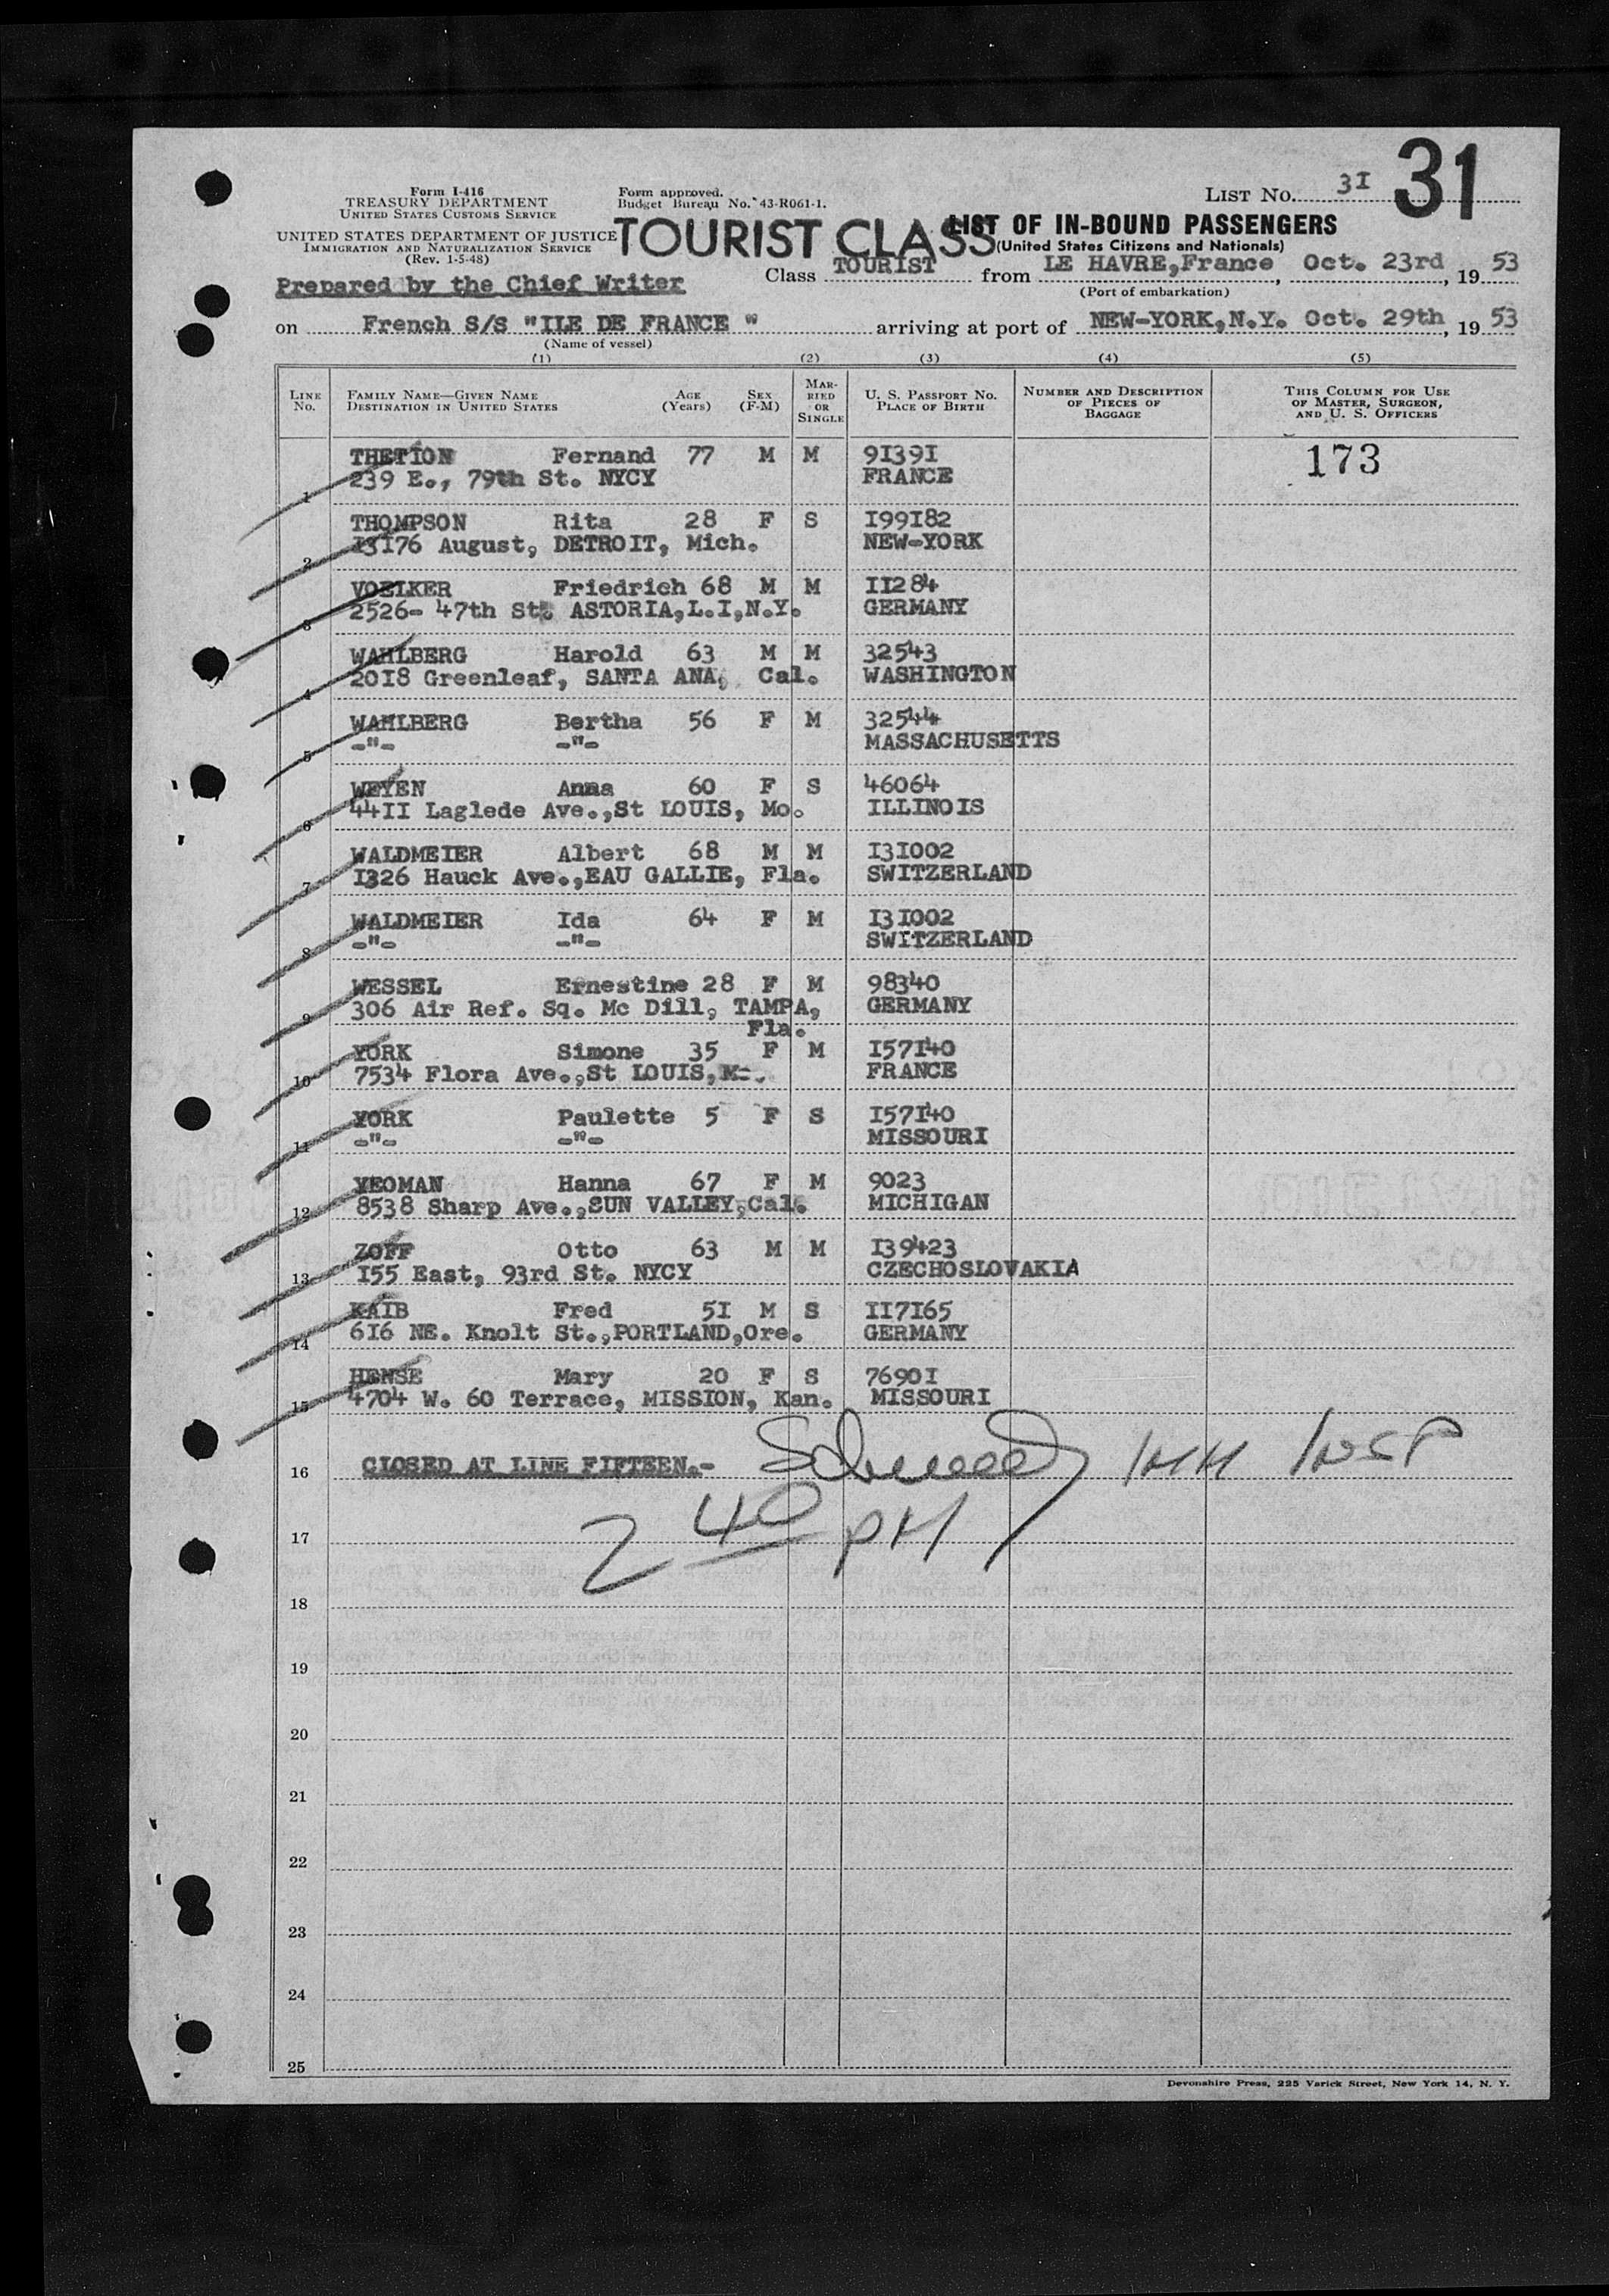 31
Form I-416
TREASURY DEPARTMENT
UNITED STATES CUSTOMS SERVICE
UNITED STATES DEPARTMENT OF JUSTICE
IMMIGRATION AND NATURALIZATION SERVICE
(Rev. 1-5-48)
Form approved.
Budget Bureau No. 43-R061-1.
LIST No. 3I
TOURIST CLASS
LIST OF IN-BOUND PASSENGERS
(United States Citizens and Nationals)
Prepared by the Chief Writer
Class TOURIST from LE HAVRE,France Oct. 23rd, 19 53
(Port of embarkation)
on French S/S "ILE DE FRANCE " arriving at port of NEW-YORK,N.Y. Oct. 29th, 19 53
(Name of vessel)
(1) (2) (3) (4) (5)
LINE No. FAMILY NAME—GIVEN NAME DESTINATION IN UNITED STATES AGE (Years) SEX (F-M) MARRIED OR SINGLE U. S. PASSPORT NO. PLACE OF BIRTH NUMBER AND DESCRIPTION OF PIECES OF BAGGAGE THIS COLUMN FOR USE OF MASTER, SURGEON, AND U. S. OFFICERS
THETION Fernand 77 M M 9I39I 173
1 239 E., 79th St. NYCY FRANCE
THOMPSON Rita 28 F S I99I82
2 I3I76 August, DETROIT, Mich. NEW-YORK
VOELKER Friedrich 68 M M II284
3 2526- 47th St. ASTORIA,L.I,N.Y. GERMANY
WAHLBERG Harold 63 M M 32543
4 20I8 Greenleaf, SANTA ANA, Cal. WASHINGTON
WAHLBERG Bertha 56 F M 32544
5 -"- -"- MASSACHUSETTS
WEYEN Anna 60 F S 46064
6 44II Laglede Ave.,St LOUIS, Mo. ILLINOIS
WALDMEIER Albert 68 M M I3I002
7 I326 Hauck Ave.,EAU GALLIE, Fla. SWITZERLAND
WALDMEIER Ida 64 F M I3I002
8 -"- -"- SWITZERLAND
WESSEL Ernestine 28 F M 98340
9 306 Air Ref. Sq. Mc Dill, TAMPA, GERMANY
Fla.
YORK Simone 35 F M I57I40
10 7534 Flora Ave.,St LOUIS, FRANCE
YORK Paulette 5 F S I57I40
11 -"- -"- MISSOURI
YEOMAN Hanna 67 F M 9023
12 8538 Sharp Ave.,SUN VALLEY,Cal. MICHIGAN
ZOFF Otto 63 M M I39423
13 I55 East, 93rd St. NYCY CZECHOSLOVAKIA
KAIB Fred 5I M S II7I65
14 6I6 NE. Knolt St.,PORTLAND,Ore. GERMANY
HENSE Mary 20 F S 7690I
15 4704 W. 60 Terrace, MISSION, Kan. MISSOURI
16 CLOSED AT LINE FIFTEEN.- IMM INSP
17 2 40 PM
18
19
20
21
22
23
24
25
Devonshire Press, 225 Varick Street, New York 14, N. Y.